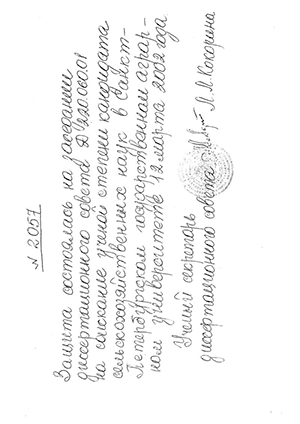 № 2057
Защита состоялась на заседании
диссертационного совета Д 220.060.01
на соискание ученой степени кандидата
сельскохозяйственных наук в Санкт-
Петербургском государственном аграр-
ном университете 12 марта 2002 года
Ученый секретарь
диссертационного совета Л.М. Кокорина